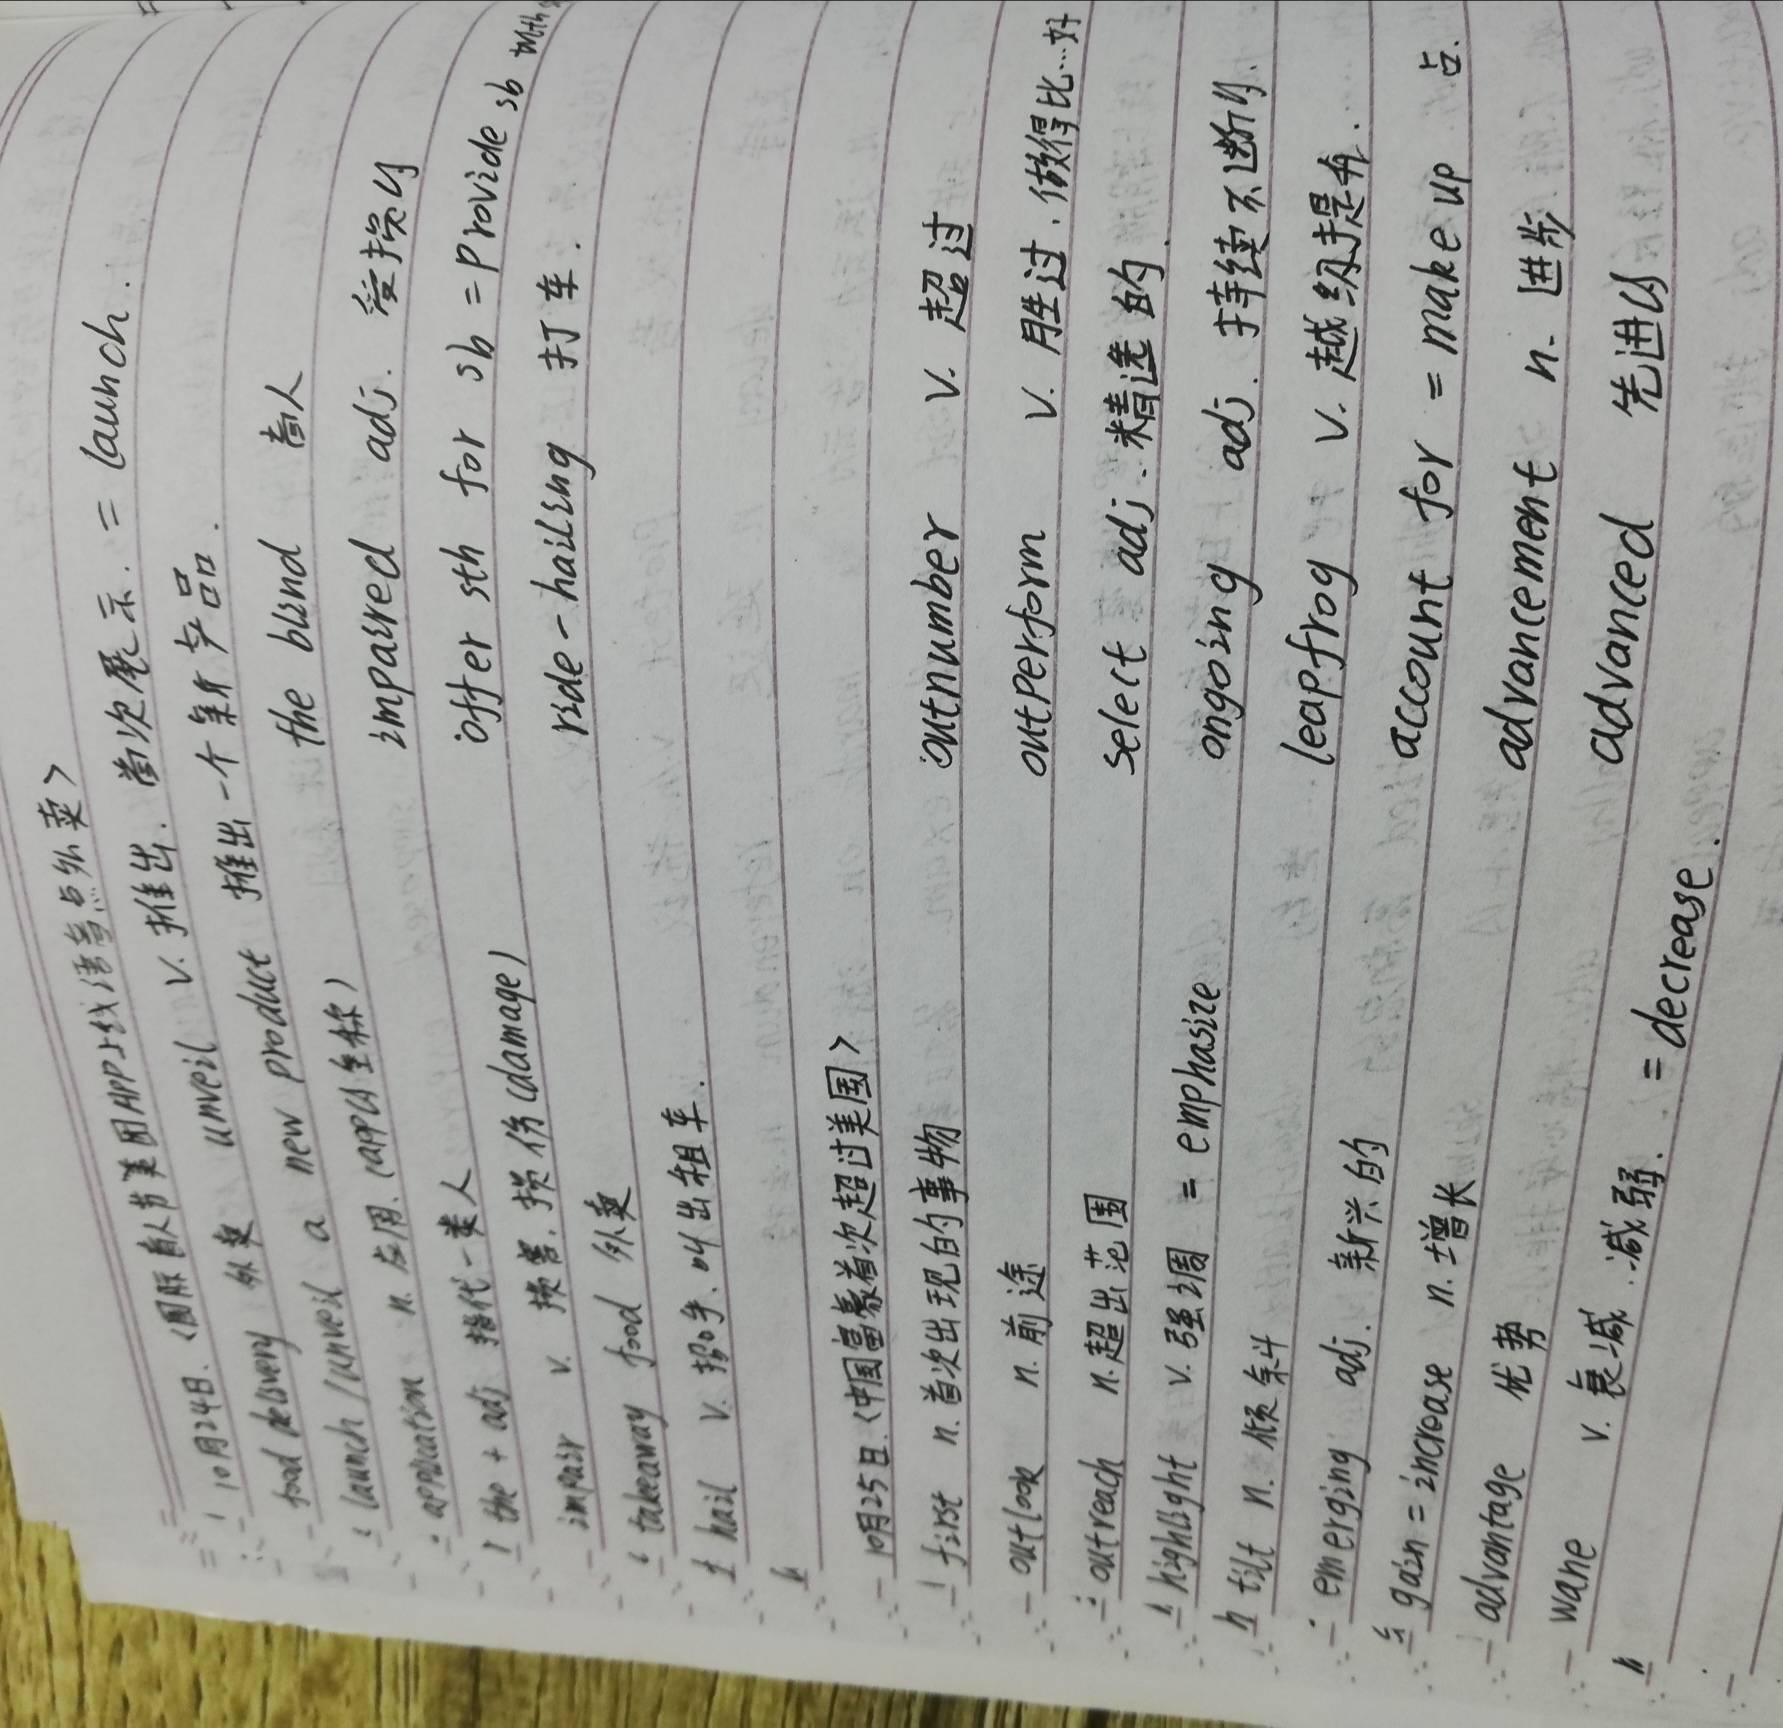 10月24日.<国际盲人节美团APP上线语音点外卖>
food delivery 外卖 unveil v. 推出. 首次展示. = launch.
launch/unveil a new product 推出一个新产品.
application n. 应用. (app的全称) the blind 盲人
the + adj 指代一类人 impaired adj. 受损的
impair v. 损害. 损伤 (damage) offer sth for sb = provide sb with
takeaway food 外卖 ride-hailing 打车.
hail v. 招手. 叫出租车.
10月25日.<中国富豪首次超过美国>
first n. 首次出现的事物 outnumber v. 超过
outlook n. 前途 outperform v. 胜过. 做得比…好
outreach n. 超出范围 select adj. 精选的.
highlight v. 强调 = emphasize ongoing adj. 持续不断的.
tilt n. 倾斜 leapfrog v. 越级提升.
emerging adj. 新兴的 account for = make up 占.
gain = increase n. 增长 advancement n. 进步
advantage 优势 advanced 先进的
wane v. 衰减. 减弱. = decrease.